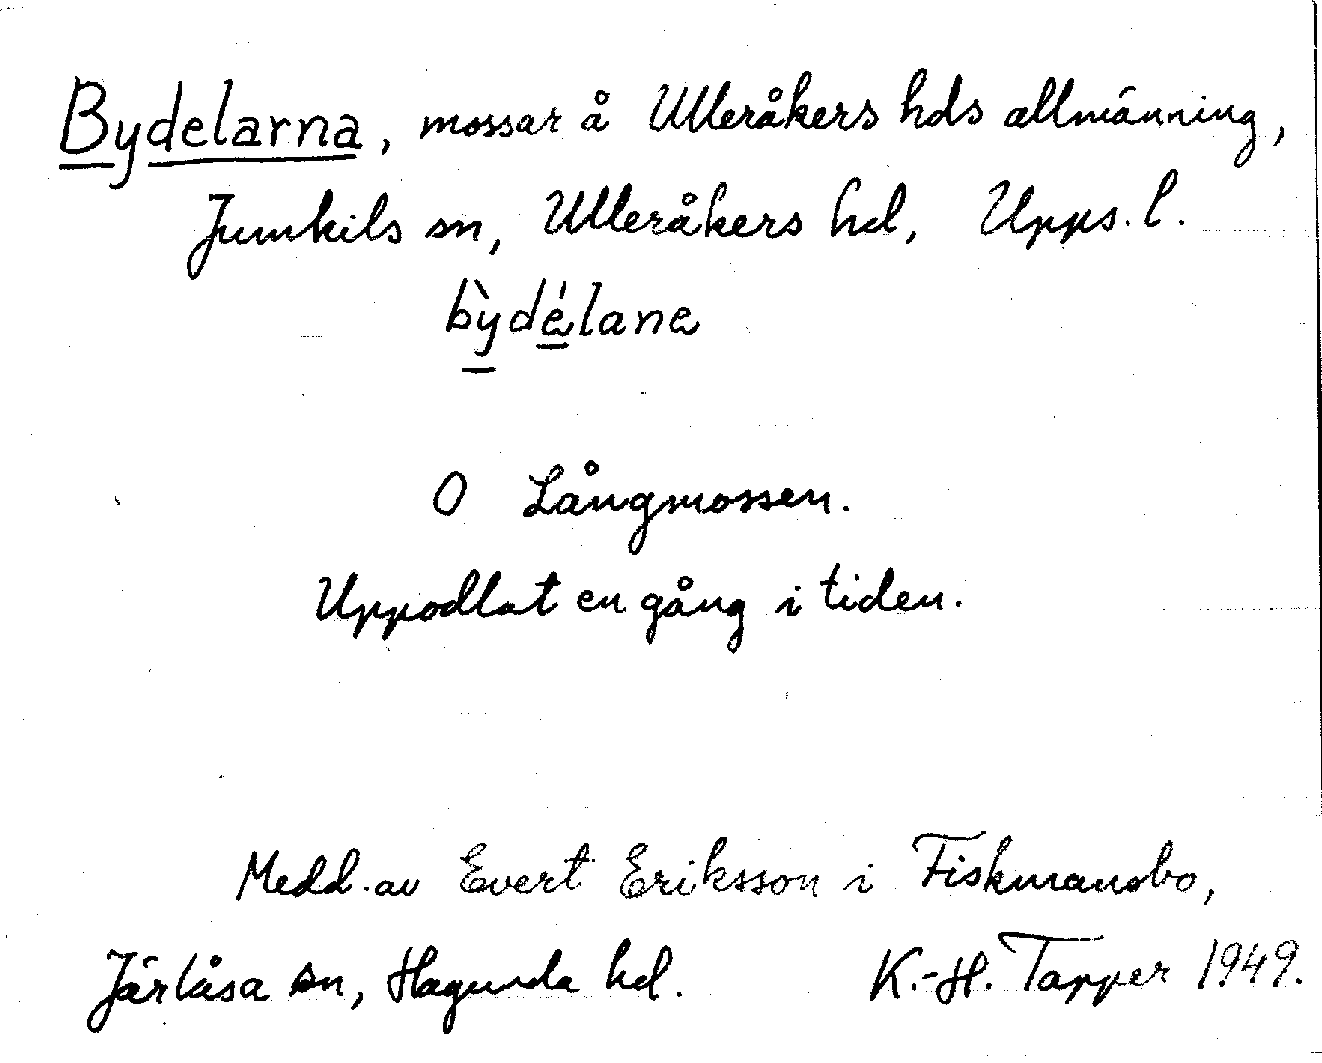 Bydelarna, mossar å Ulleråkers hds allmänning,
Jumkils sn, Ulleråkers hd, Upps. l.
bỳdélane
O Långmossen.
Uppodlat en gång i tiden.
Medd. av Evert Eriksson i Fiskmansbo,
Järlåsa sn, Hagunda hd. K.-H. Tapper 1949.